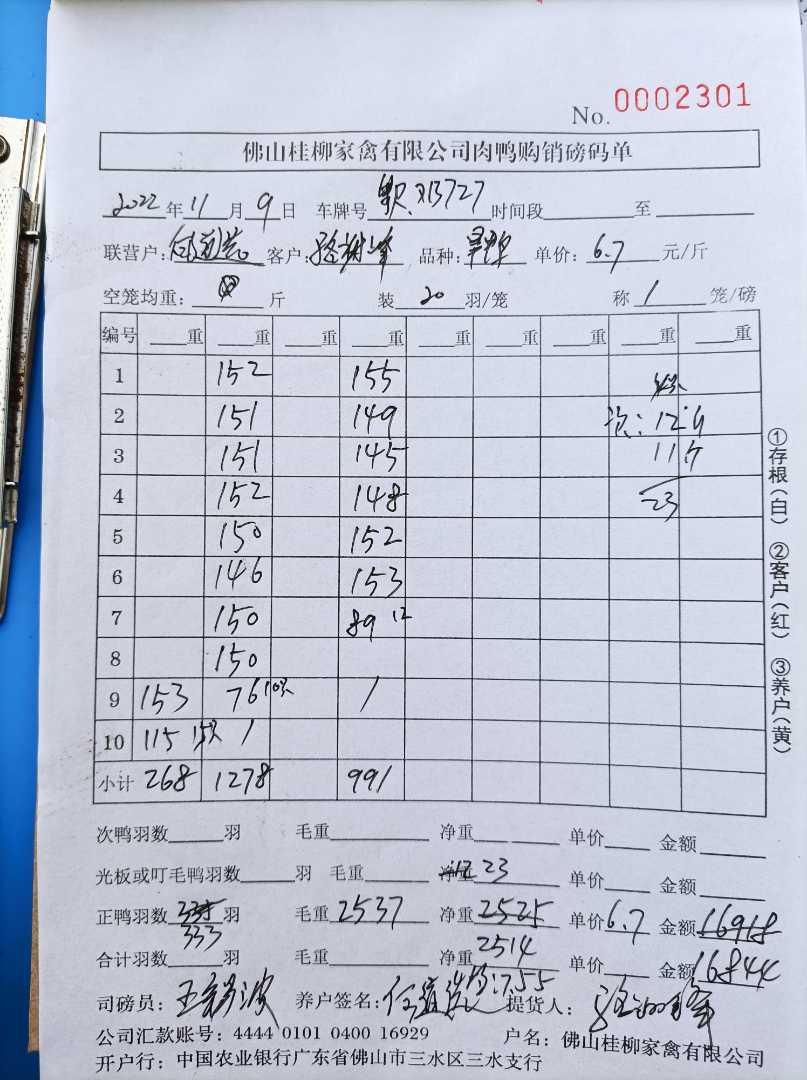 No. 0002301
佛山桂柳家禽有限公司肉鸭购销磅码单
2022年11月9日 车牌号 时间段 至
联营户: 客户: 品种: 单价:6.7元/斤
空笼均重: 斤 装20羽/笼 称1笼/磅
编号 重 重 重 重 重 重 重 重 重
1 152 155
2 151 149 次: 12斤
3 151 145 11斤
4 152 148 23
5 150 152
6 146 153
7 150 89 12
8 150
9 153 76 10只 /
10 115 15只 /
小计 268 1278 991
次鸭羽数 羽 毛重 净重 单价 金额
光板或叮毛鸭羽数 羽 毛重 净重 23 单价 金额
正鸭羽数 335 羽 毛重 2537 净重 2525 单价 6.7 金额 16918
333 2514 16844
合计羽数 羽 毛重 净重 单价 金额
司磅员: 养户签名: 均:7.55 提货人:
公司汇款账号: 4444 0101 0400 16929 户名: 佛山桂柳家禽有限公司
开户行: 中国农业银行广东省佛山市三水区三水支行
①存根(白) ②客户(红) ③养户(黄)